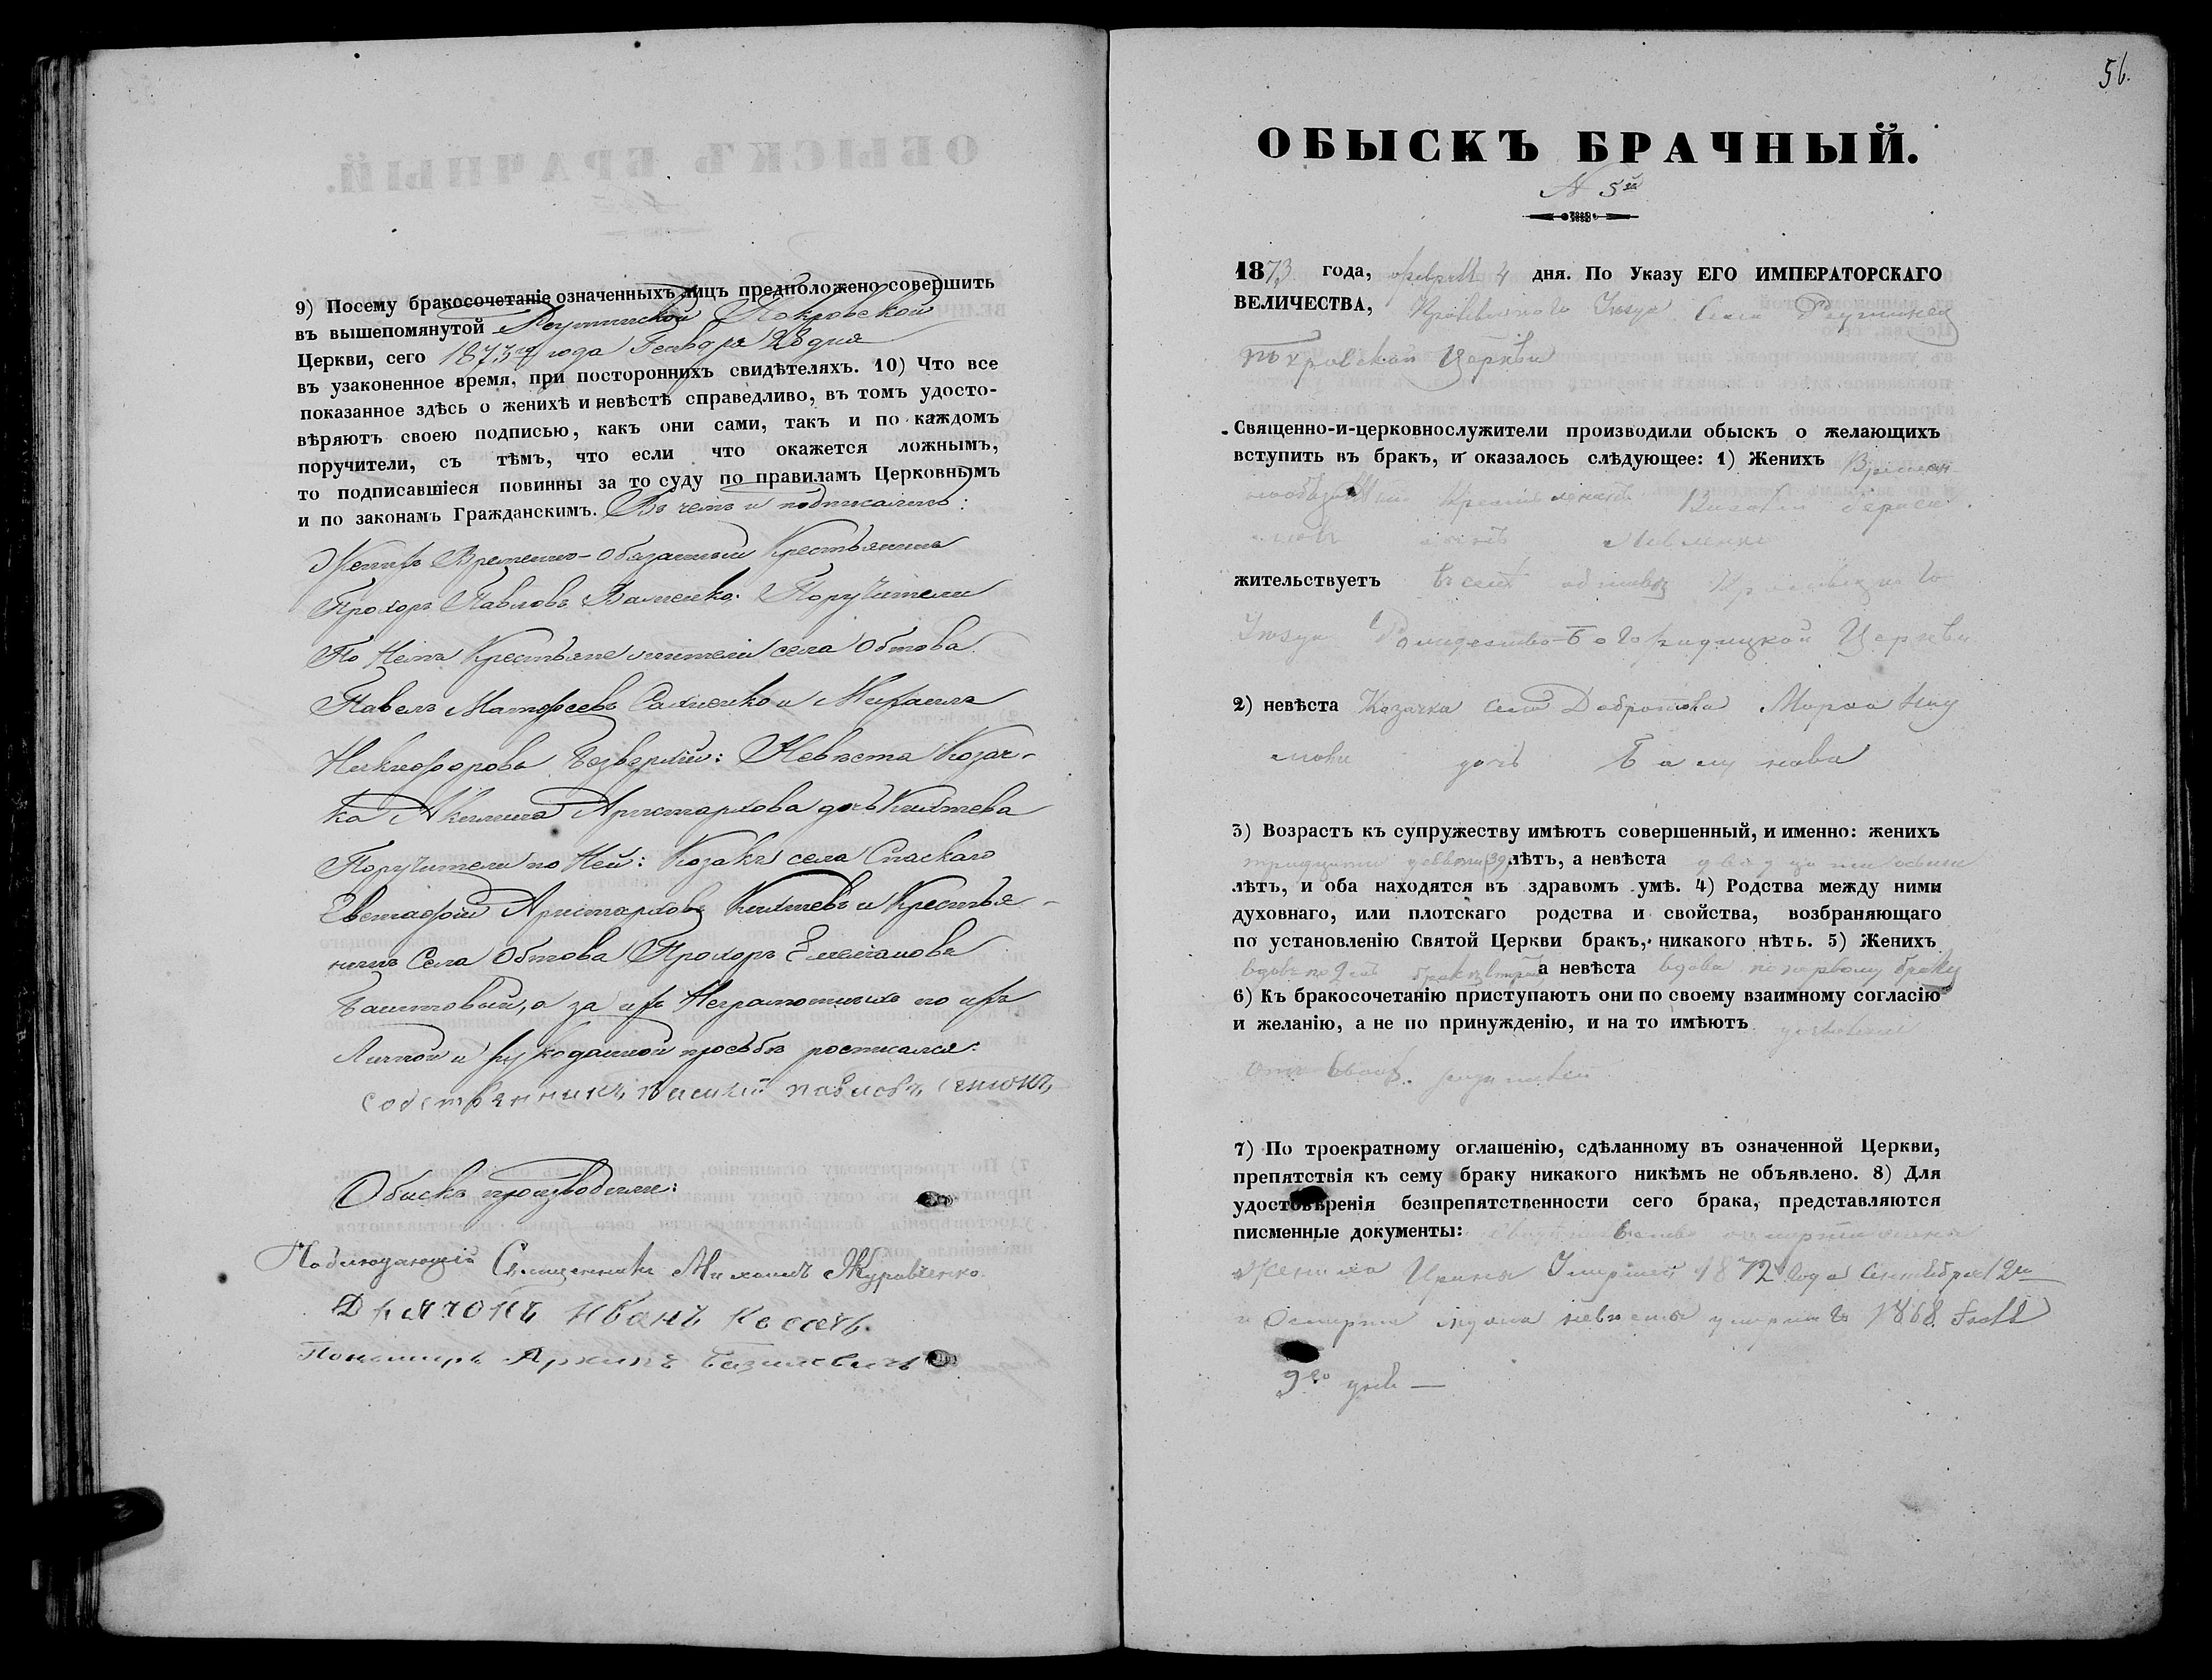 9) Посему бракосочетаніе означенныхъ лицъ предположено совершить
въ вышепомянутой Реутинской Покровской
Церкви, сего 1873го года Генваря 28 дня
въ узаконенное время, при постороннихъ свидѣтеляхъ. 10) Что все
показанное здѣсь о женихѣ и невѣстѣ справедливо, въ томъ удосто-
вѣряютъ своею подписью, какъ они сами, такъ и по каждомъ
поручители, съ тѣмъ, что если что окажется ложнымъ,
то подписавшіеся повинны за то суду по правиламъ Церковнымъ
и по законамъ Гражданскимъ. Въ чемъ и подписались:
Женихъ Временно-Обязанный Крестьянинъ
Прохоръ Павловъ Поручители
По Немъ Крестьяне жители села Обтова
Павелъ Матфеевъ и Михаилъ
Никифоровъ Безверхій: Невѣста Козач-
ка Акилина Аристархова дочь Кихтева
Поручители по Ней: Козакъ села Спаскаго
Евстафій Аристарховъ Кихтевъ и Крестья-
нинъ Села Обтова Прохоръ Емельяновъ
Баштовый, а за ихъ Неграмотныхъ по ихъ
Личной и рукоданной просьбѣ росписался:
собственникъ Василий павловъ
Обыскъ производили:
Наблюдающій Священникъ Михаилъ Журавченко.
Дьячокъ Иванъ Косачъ.
Пономарь Архипъ Базилевичъ
56.
ОБЫСКЪ БРАЧНЫЙ.
N 5й
1873 года, февраля 4 дня. По Указу ЕГО ИМПЕРАТОРСКАГО
ВЕЛИЧЕСТВА, Кролевецкого Уезда Села Реутинец
Покровской Церкви
Священно-и-церковнослужители производили обыскъ о желающихъ
вступить въ бракъ, и оказалось слѣдующее: 1) Женихъ Времен
нообязанный Василий Гераси
мовъ сынъ
жительствуетъ въ селѣ Обтовѣ Кролевецкого
Уезда Рождество-Богородицкой Церкви
2) невѣста Казачка села Добротова Марфа Нау
мова дочь
3) Возрастъ къ супружеству имѣютъ совершенный, и именно: женихъ
тридцати девяти (39) лѣтъ, а невѣста двадцати осьми
лѣтъ, и оба находятся въ здравомъ умѣ. 4) Родства между ними
духовнаго, или плотскаго родства и свойства, возбраняющаго
по установленію Святой Церкви бракъ, никакого нѣтъ. 5) Женихъ
вдовъ по 2мъ бракѣ а невѣста вдова по первому браку
6) Къ бракосочетанію приступаютъ они по своему взаимному согласію
и желанію, а не по принужденію, и на то имѣютъ дозволение
отъ своихъ родителей
7) По троекратному оглашенію, сдѣланному въ означенной Церкви,
препятствія къ сему браку никакого никѣмъ не объявлено. 8) Для
удостовѣренія безпрепятственности сего брака, представляются
писменные документы: о смерти жены
Жениха Ирины Умершей 1872 года Сентября 12го
и О смерти мужа невѣсты умершаго 1868
9го дня —